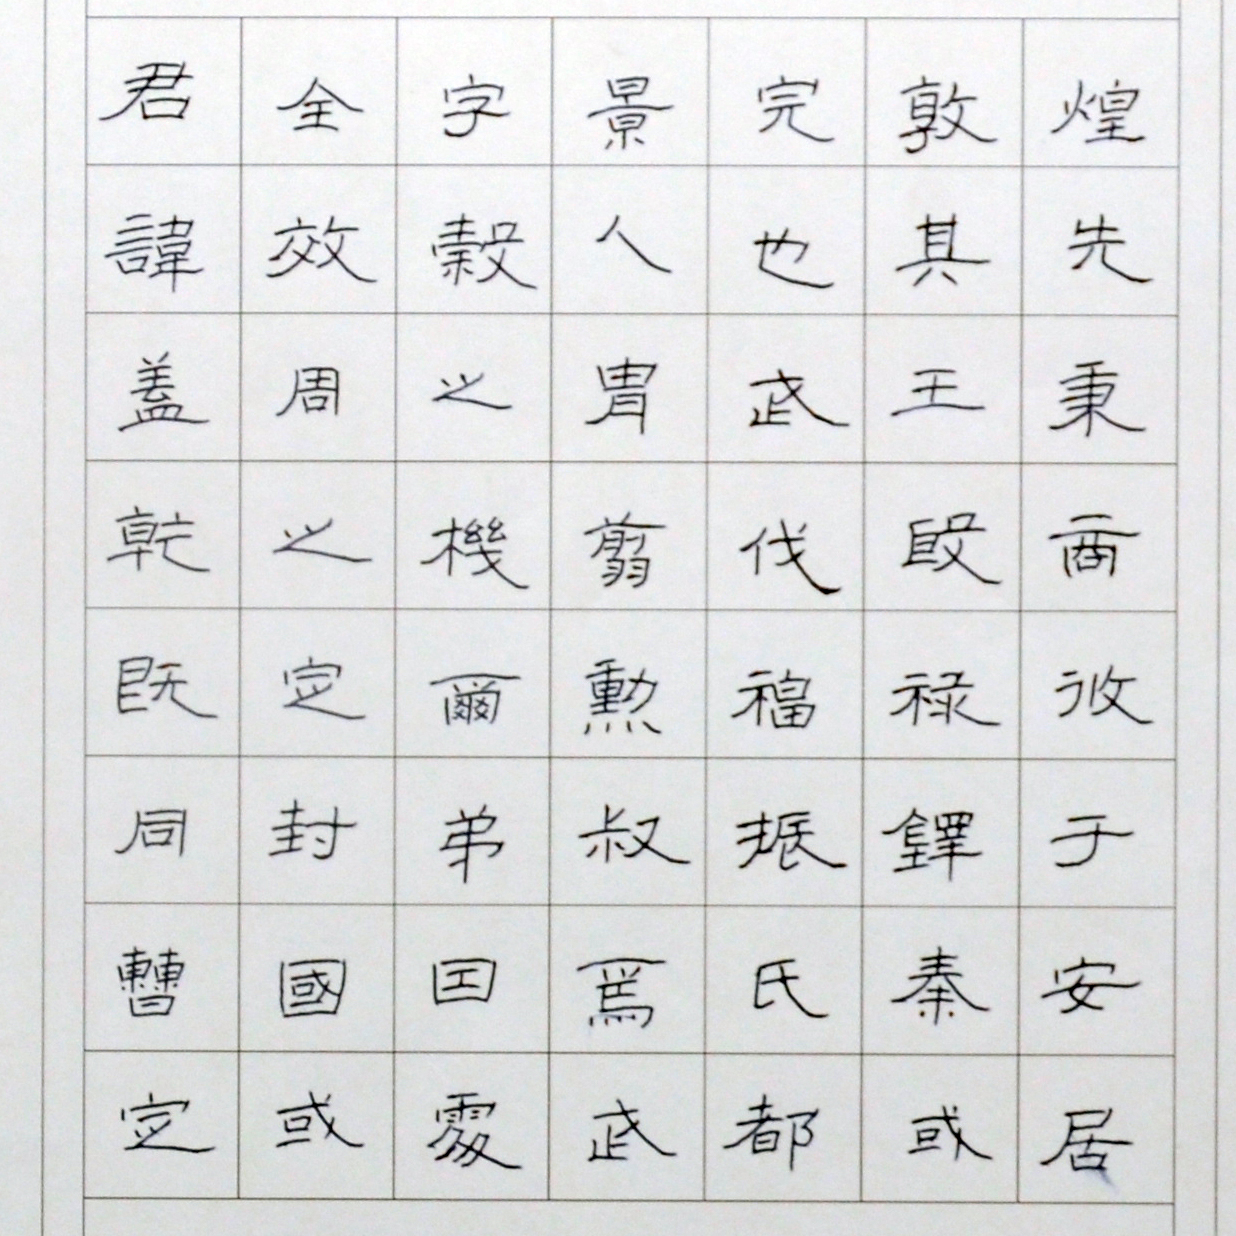 君全字景完敦煌
諱效穀人也其先
蓋周之胄武王秉
乾之機翦伐殷商
既定爾勳福禄攸
同封弟叔振鐸于
曹國因焉氏秦安
定或處武都或居